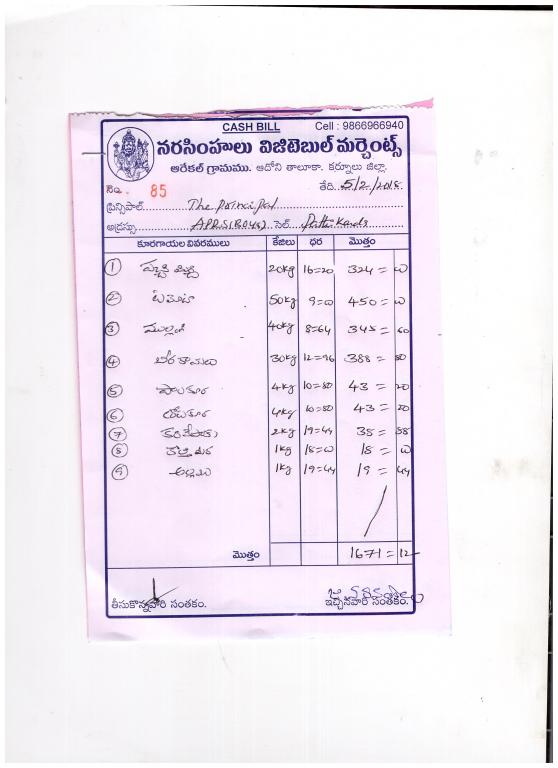 CASH BILL Cell : 9866966940
నరసింహలు విజిటెబుల్ మర్చెంట్స్
ఆరేకల్ గ్రామము. ఆదోని తాలూకా. కర్నూలు జిల్లా.
No. 85 తేది. 5/2/2018.
ప్రిన్సిపాల్ The principal
అడ్రస్సు APRS(Boys) సెల్
కూరగాయల వివరములు కేజిలు ధర మొత్తం
1 పచ్చి మిర్చి 20kg 16=20 324=ω
2 టమోటా 50kg 9=ω 450=ω
3 ముల్లంగి 40kg 8=64 345=60
4 బీరకాయలు 30kg 12=96 388=80
5 పాలకూర 4kg 10=80 43=20
6 4kg 10=80 43=20
7 కరివేపాకు 2kg 19=44 38=88
8 కొత్తిమీర 1kg 18=ω 18=ω
9 అల్లము 1kg 19=44 19=44
మొత్తం 1671=12
తీసుకొన్నవారి సంతకం. ఇచ్చినవారి సంతకం.